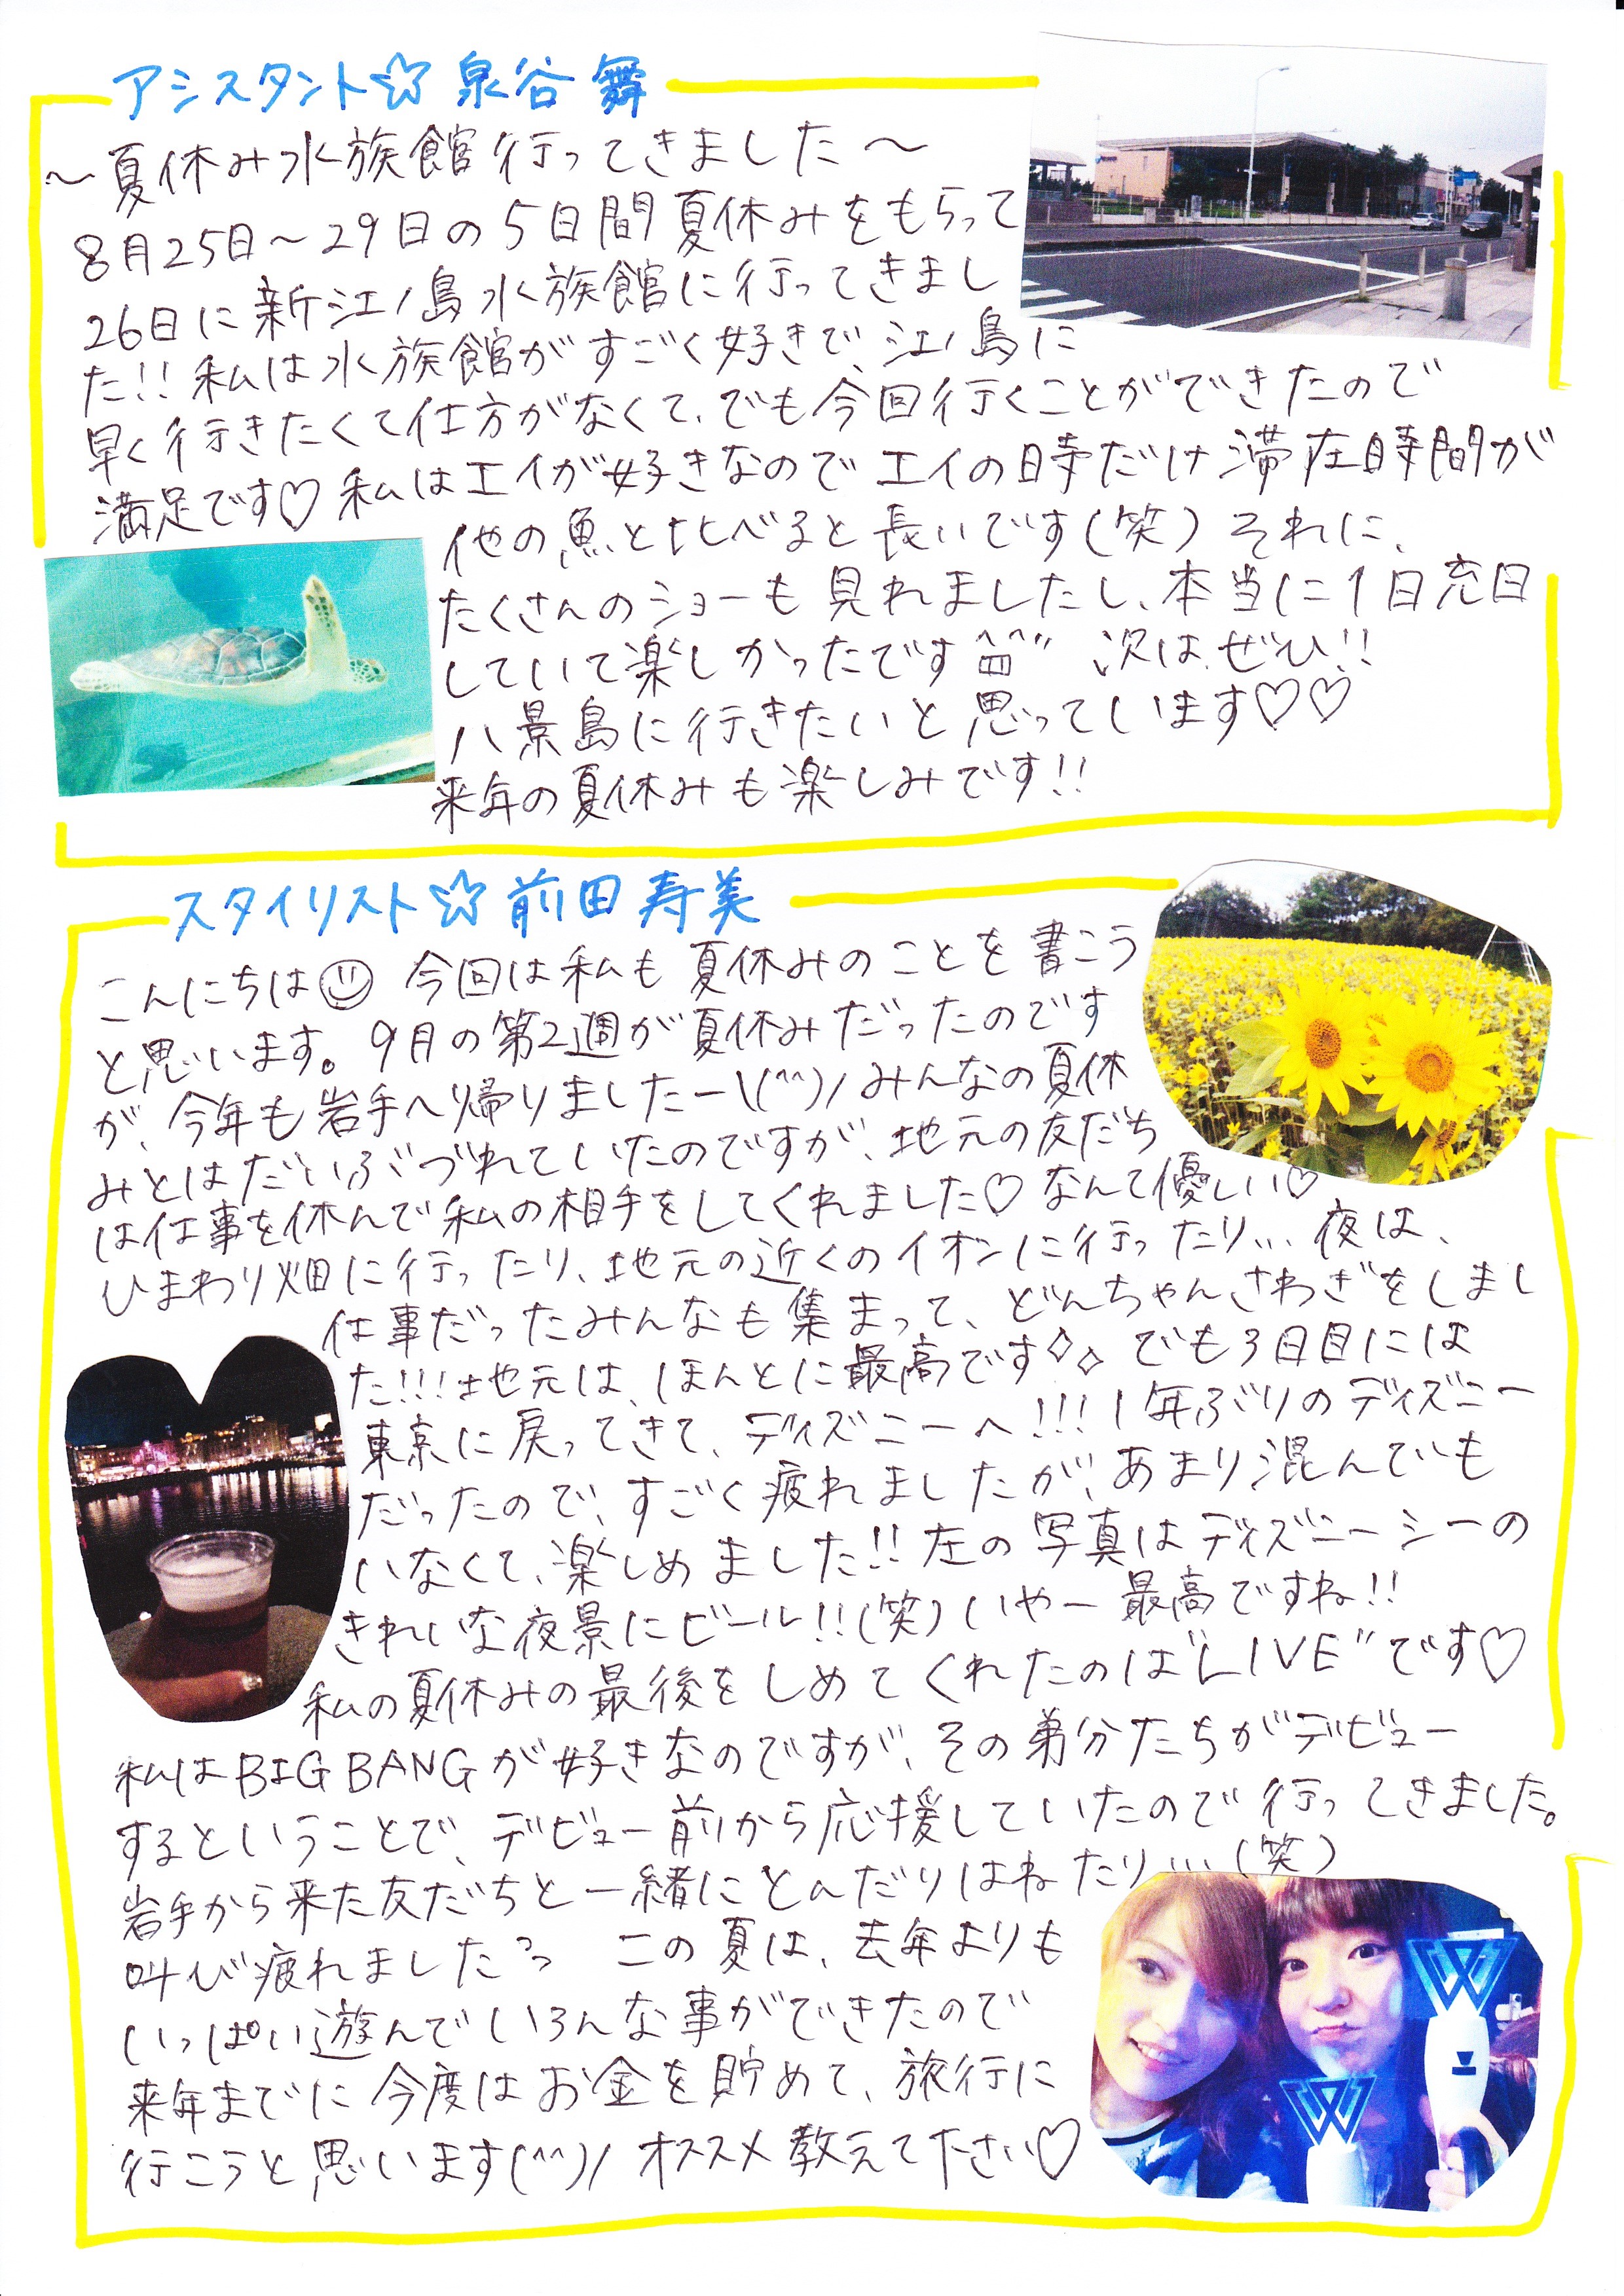 アシスタント☆泉谷 舞
～夏休み水族館行ってきました～
8月25日～29日の5日間夏休みをもらって
26日に新江ノ島水族館に行ってきまし
た!! 私は水族館がすごく好きで、江ノ島に
早く行きたくて仕方がなくて、でも今回行くことができたので
満足です♡ 私はエイが好きなのでエイの時だけ滞在時間が
他の魚と比べると長いです(笑) それに、
たくさんのショーも見れましたし、本当に1日充日
していて楽しかったです 次は、ぜひ!!
八景島に行きたいと思っています♡♡
来年の夏休みも楽しみです!!
スタイリスト☆前田寿美
こんにちは☺ 今回は私も夏休みのことを書こう
と思います。9月の第2週が夏休みだったのです
が、今年も岩手へ帰りましたー\(^^)/ みんなの夏休
みとはだいぶづれていたのですが、地元の友だち
は仕事を休んで私の相手をしてくれました♡ なんて優しい♡
ひまわり畑に行ったり、地元の近くのイオンに行ったり… 夜は、
仕事だったみんなも集まって、どんちゃんさわぎをしまし
た!!! 地元は、ほんとに最高です でも3日目には
東京に戻ってきて、ディズニーへ!!! 1年ぶりのディズニー
だったので、すごく疲れましたが、あまり混んでいも
いなくて、楽しめました!! 左の写真はディズニーシーの
きれいな夜景にビール!!(笑) いやー最高ですね!!
私の夏休みの最後をしめてくれたのは“LIVE”です♡
私はBIGBANGが好きなのですが、その弟分たちがデビュー
するということで、デビュー前から応援していたので行ってきました。
岩手から来た友だちと一緒にとんだりはねたり…(笑)
叫び疲れました この夏は、去年よりも
いっぱい遊んでいろんな事ができたので
来年までに今度はお金を貯めて、旅行に
行こうと思います(^^)/ オススメ教えて下さい♡